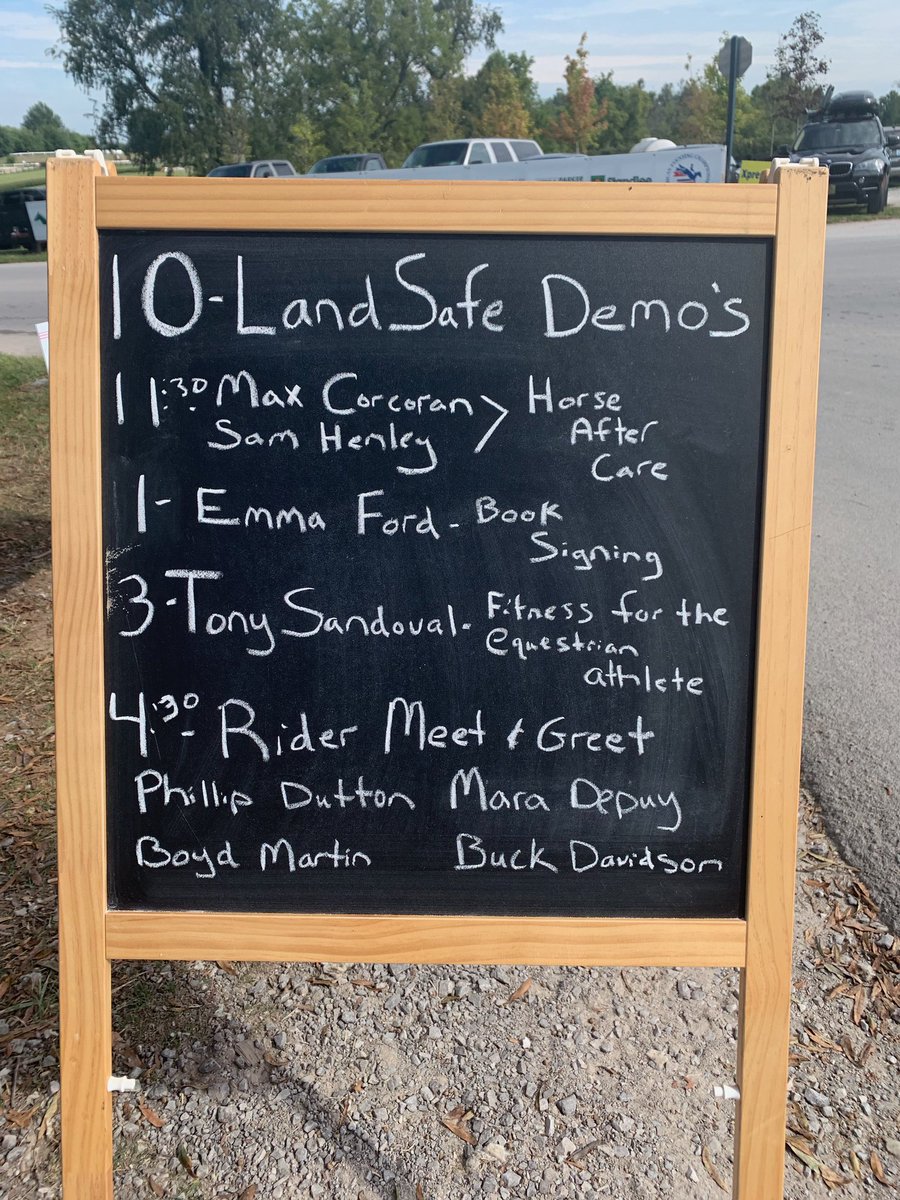 10-LandSafe Demo's
11:30 Max Corcoran > Horse
Sam Henley After
Care
1- Emma Ford - Book
Signing
3-Tony Sandoval- Fitness for the
equestrian
athlete
4:30- Rider Meet & Greet
Phillip Dutton Mara Depuy
Boyd Martin Buck Davidson